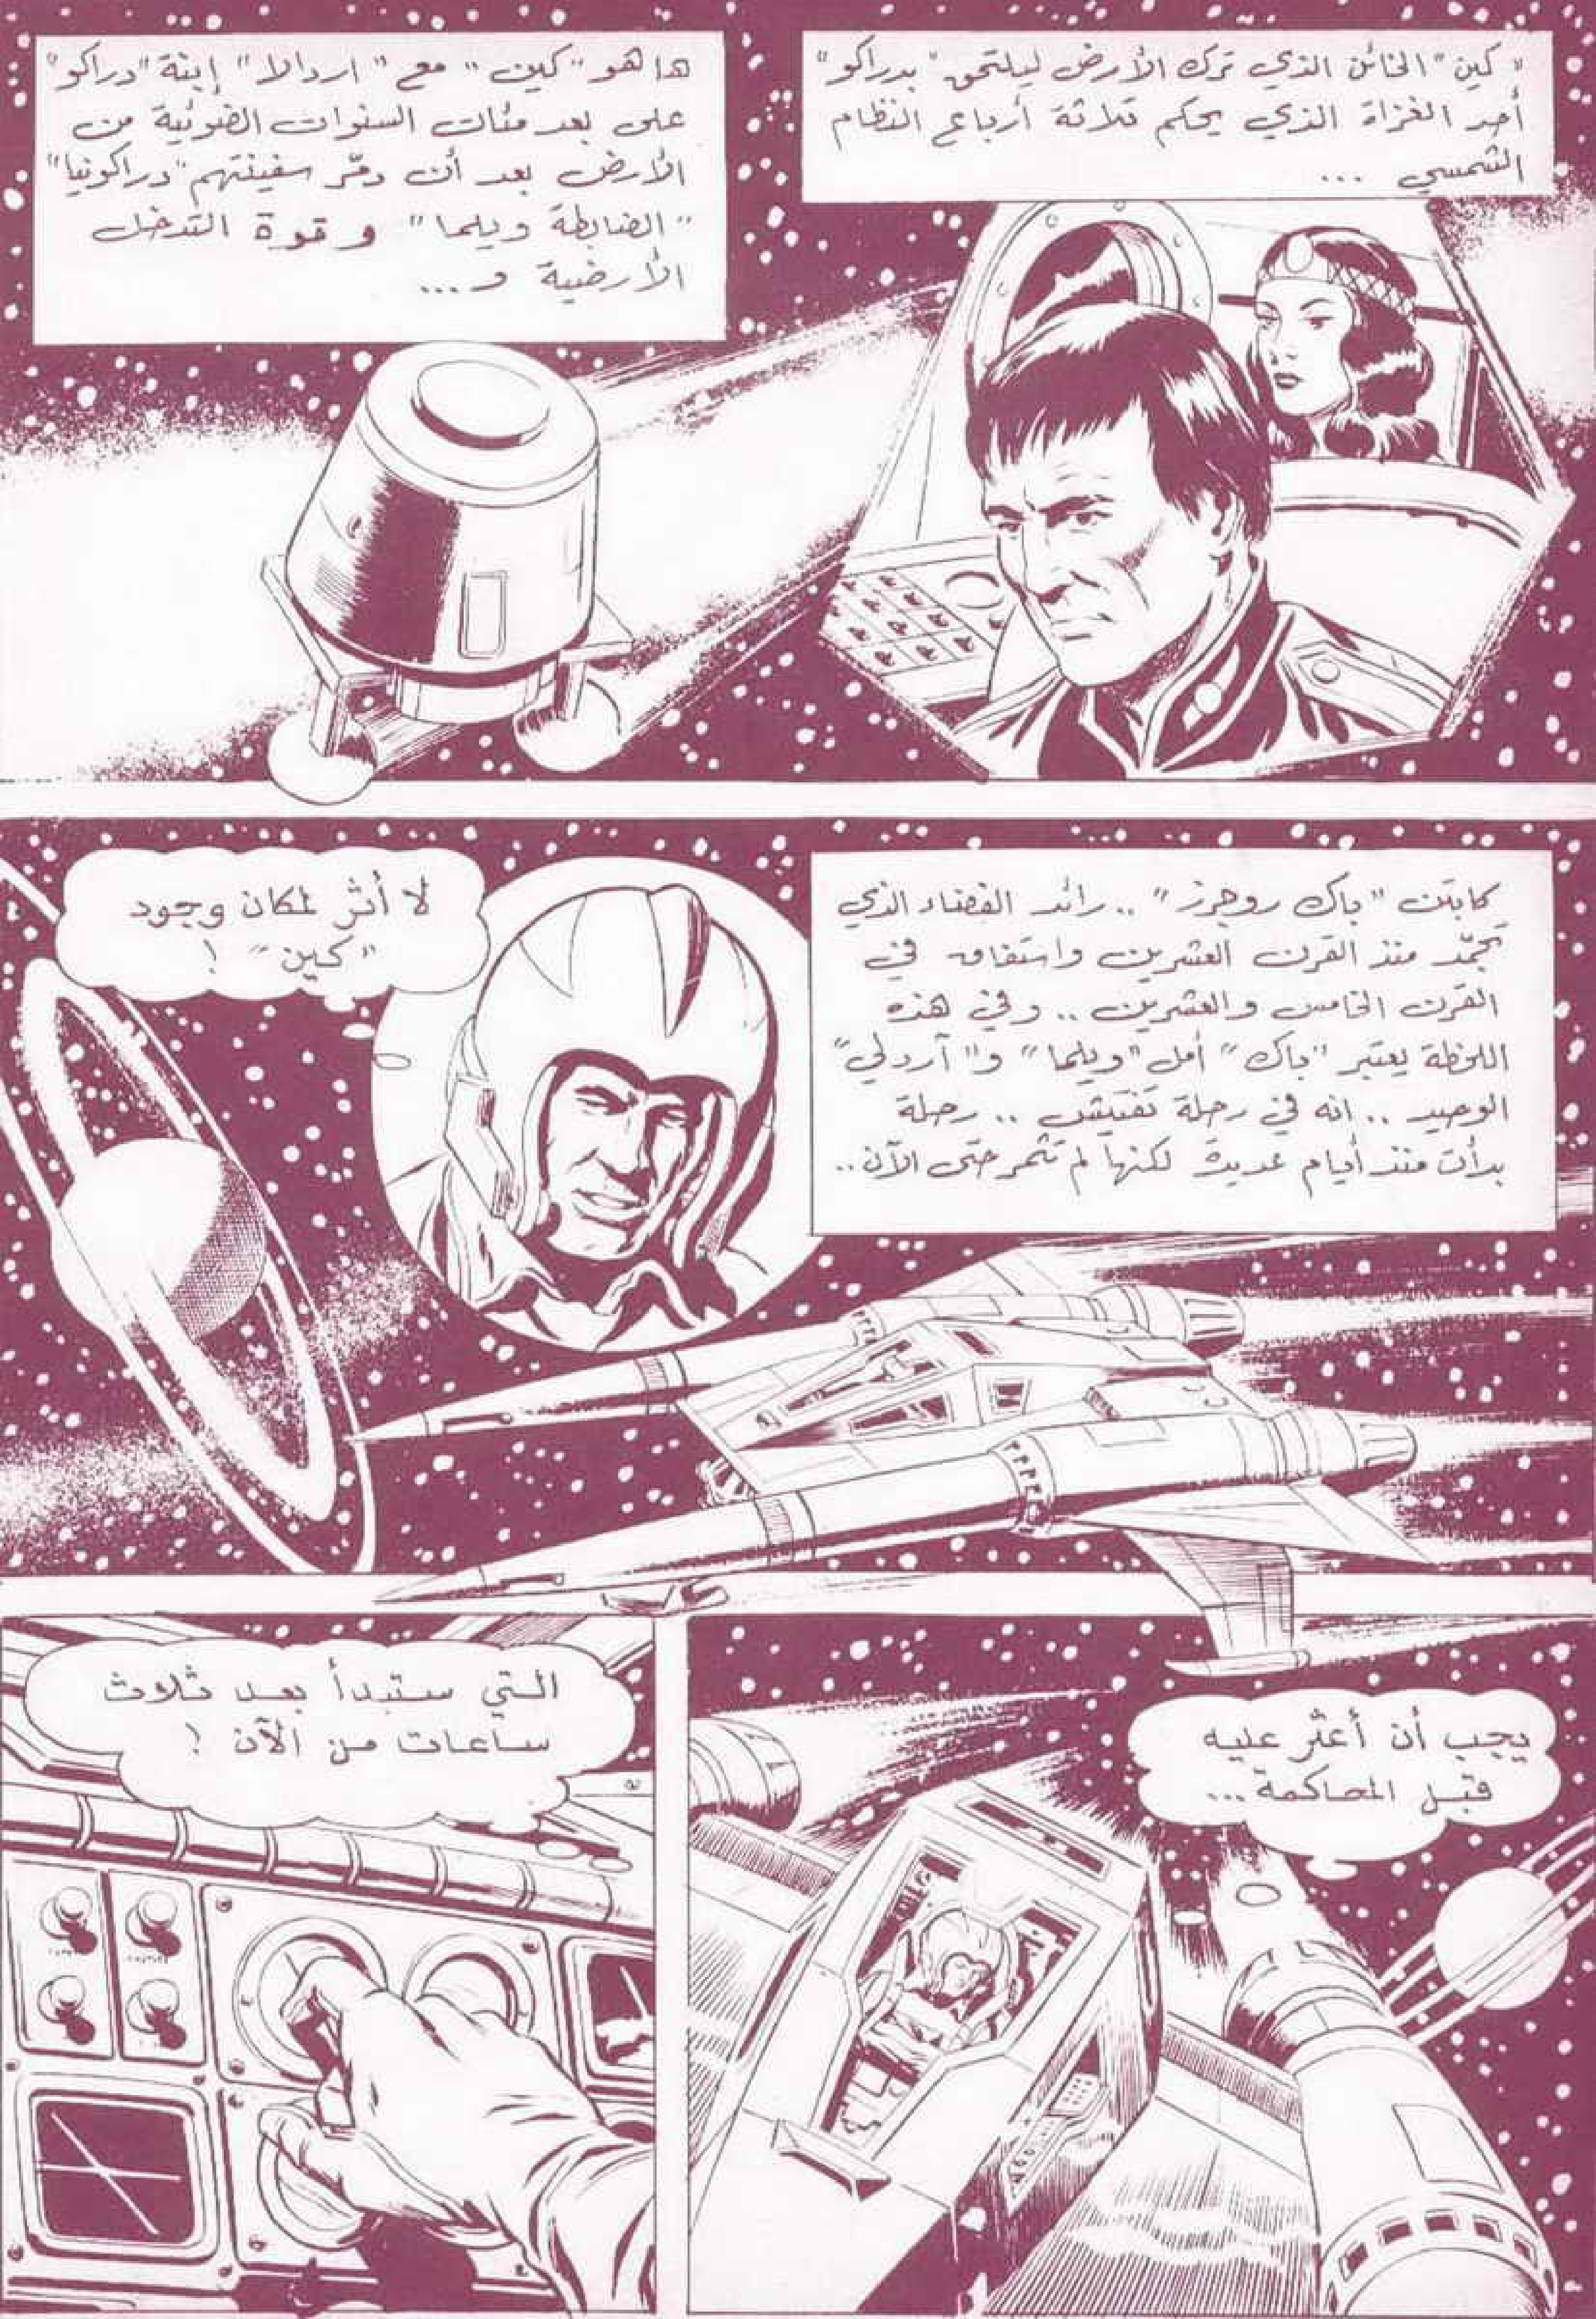 "كين" الخائن الذي ترك الأرض ليلتحق "بدراكو"
أحد الغزاة الذي يحكم ثلاثة أرباع النظام
الشمسي ...
ها هو "كين" مع "اردالا" إبنة "دراكو"
على بعد مئات السنوات الضوئية من
الأرض بعد أن دمّر سفينتهم "دراكونيا"
"الضابطة ويلما" و قوة التدخل
الأرضية و ...
كابتن "باك روجرز" .. رائد الفضاء الذي
تجمّد منذ القرن العشرين واستفاق في
القرن الخامس والعشرين .. وفي هذه
اللحظة يعتبر "باك" أمل "ويلما" و "آردلي"
الوحيد .. انه في رحلة تفتيش .. رحلة
بدأت منذ أيام عديدة لكنها لم تثمر حتى الآن ..
لا أثر لمكان وجود
"كين" !
يجب أن أعثر عليه
قبل المحاكمة ...
التي ستبدأ بعد ثلاث
ساعات من الآن !